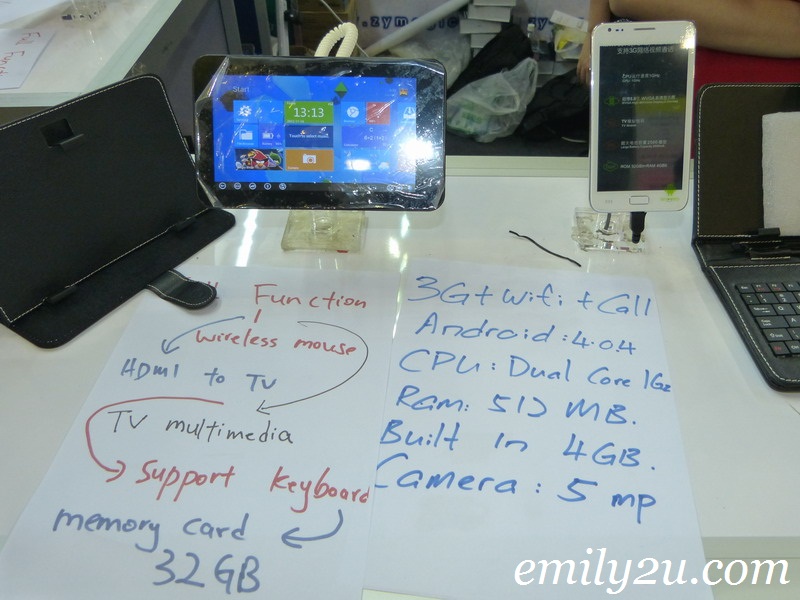 Full Funct
.zymagic
Start
13:13
支持3G网络视频通话
Function
wireless mouse
HDMI to TV
TV multimedia
support keyboard
memory card
32GB
3G+ Wifi + Call
Android : 4.0.4
CPU : Dual Core 1Gz
Ram: 512 MB.
Built in 4GB.
Camera : 5 mp
emily2u.com